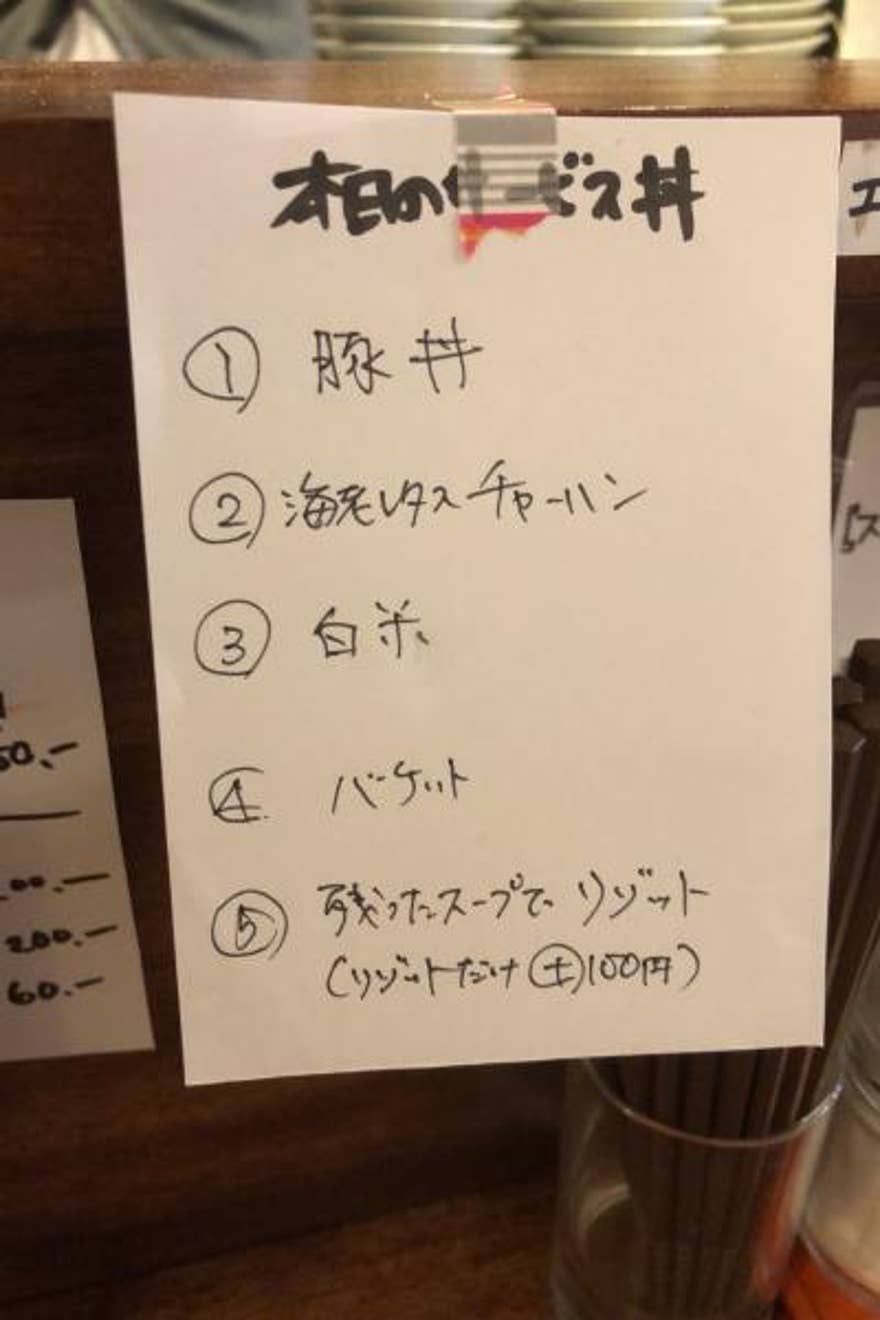 本日のサービス丼
① 豚丼
② 海老レタスチャーハン
③ 白米
④ バケット
⑤ 残ったスープで リゾット
(リゾットだけ ㊉100円)
50.-
00.-
200.-
60.-
エ
ス